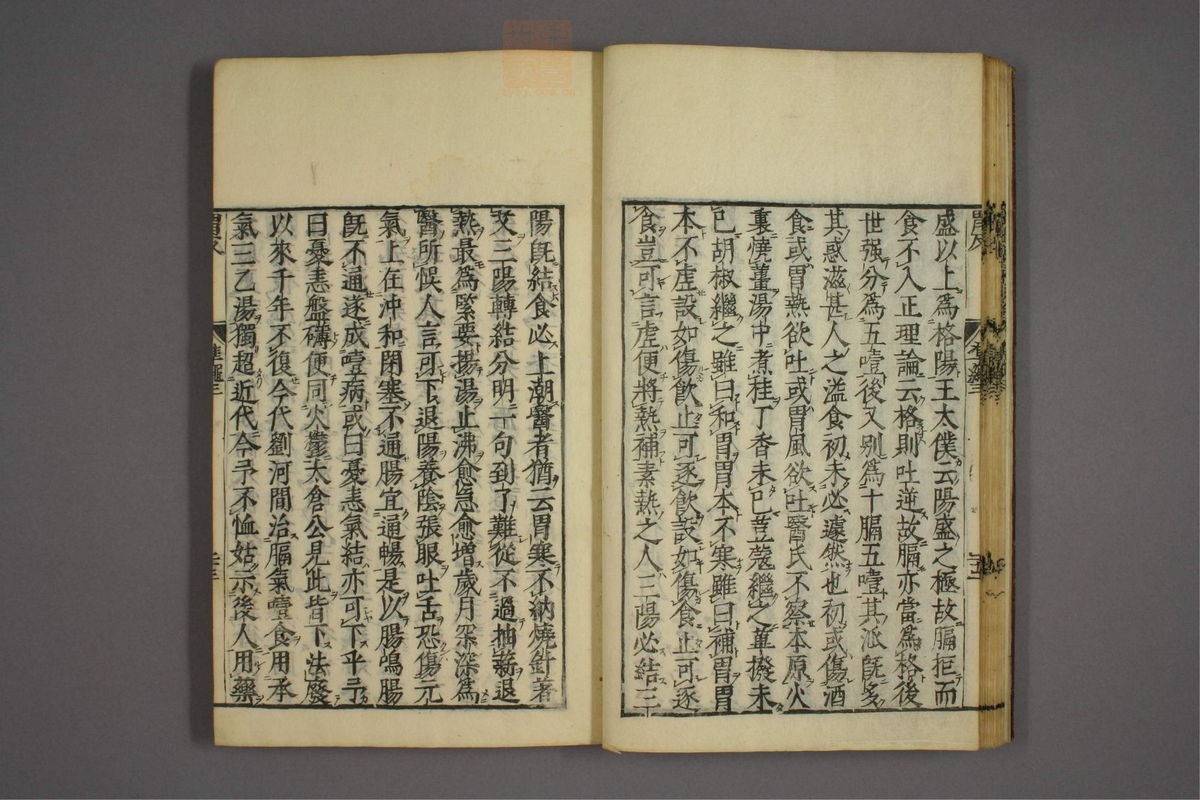 盛以上爲格陽王太僕云陽盛之極故膈拒而
食不入正理論云格則吐逆故膈亦當爲格後
世强分爲五噎後又别爲十膈五噎其泒既多
其惑滋甚人之溢食初未必遽然也初或傷酒
食或胃熱欲吐或胃風欲吐醫氏不察本原火
裏燒薑湯中煮桂丁香未已荳蔻繼之蓽撥未
已胡椒繼之雖曰和胃胃本不寒雖曰補胃胃
本不虚設如傷飲止可逐飲設如傷食止可逐
食豈可言虚便將熱補素熱之人三陽必結三
陽既結食必上潮醫者猶云胃寒不納燒針著
艾三陽轉結分明一句到了難從不過抽薪退
熱最爲緊要揚湯止沸愈急愈增歲月深深爲
醫所悞人言可下退陽養陰張眼吐舌恐傷元
氣上在冲和閉塞不通腸宜通暢是以腸鳴腸
既不通遂成噎病或曰憂恚氣結亦可下乎予
曰憂恚盤礴便同火鬱太倉公見此皆下法廢
以來千年不復今代劉河間治膈氣噎食用承
氣三乙湯獨超近代今予不恤姑示後人用藥